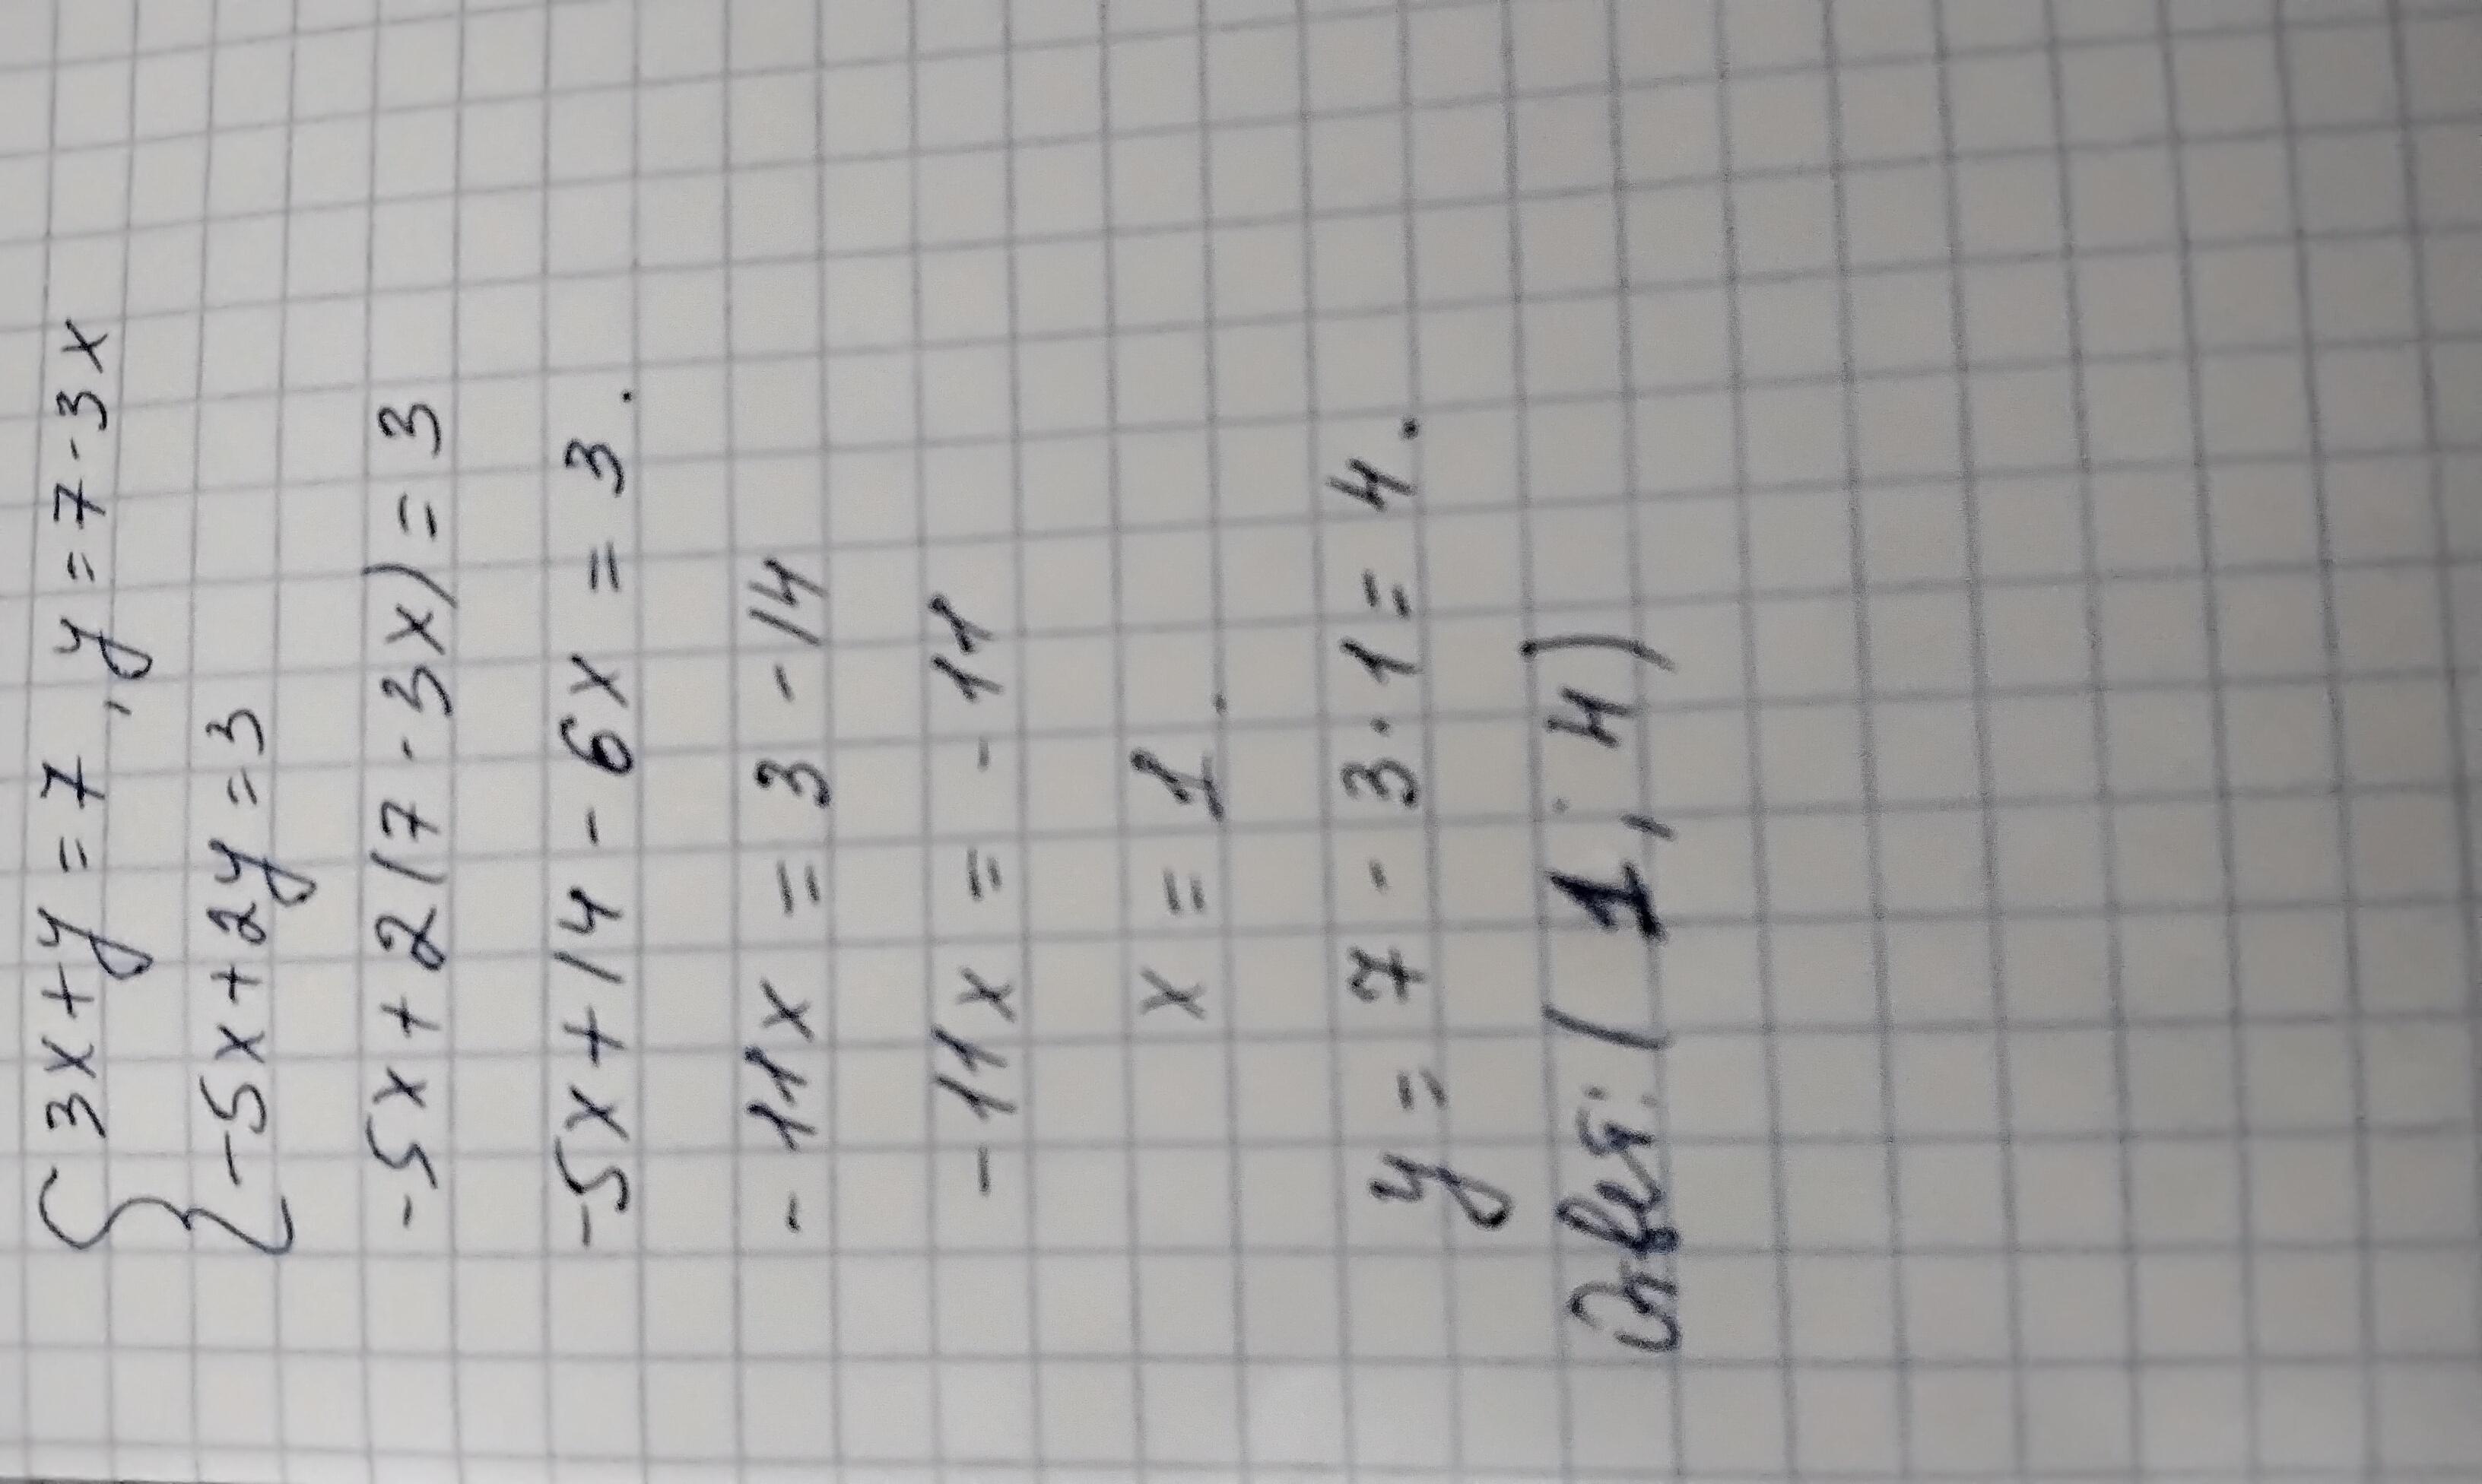 { 3x+y=7, y=7-3x
-5x+2y=3
-5x+2(7-3x)=3
-5x+14-6x=3.
-11x=3-14
-11x=-11
x=1.
y=7-3·1=4.
Ответ: (1; 4)